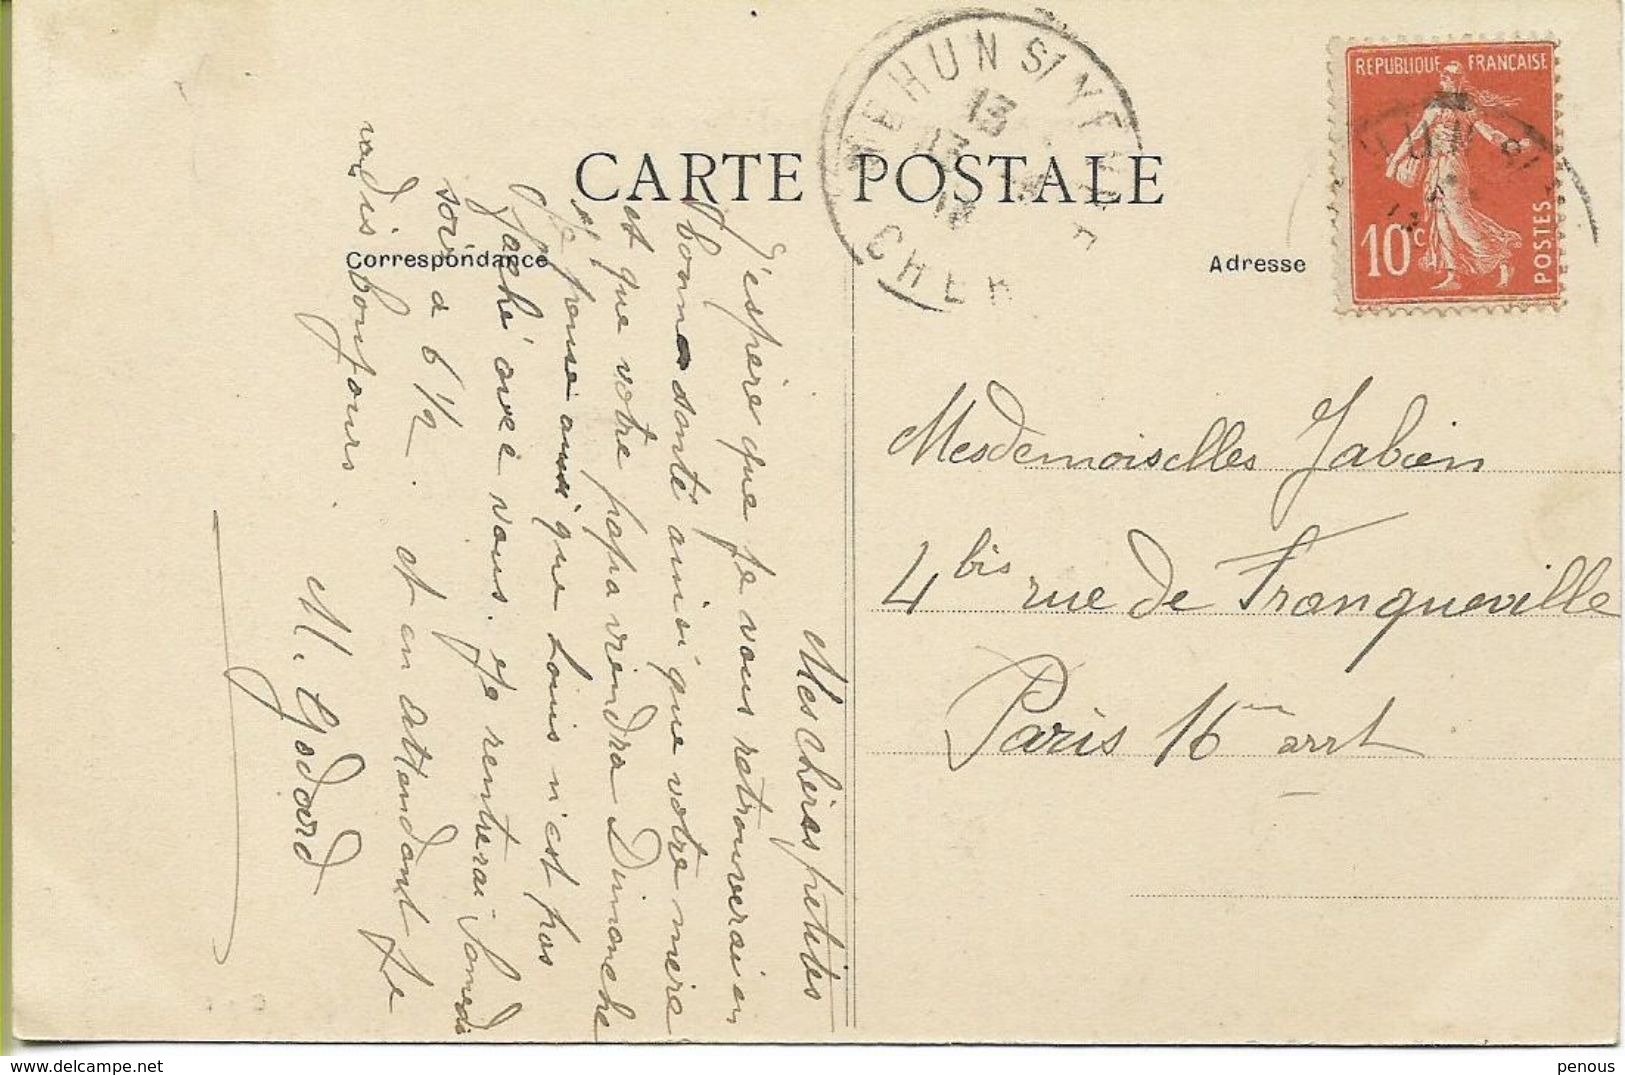 CARTE POSTALE
Correspondance
Adresse
MEHUN S/ YÈVRE
13
CHER
REPUBLIQUE FRANÇAISE
10c
POSTES
Mesdemoiselles Jabien
4 bis rue de Franqueville
Paris 16em arrt
Mes chères petites
J'espère que je vous retrouverai en
bonne santé ainsi que votre mère
et que votre papa viendra Dimanche
Je pense aussi que Louis n'est pas
faché avec vous. Je rentrerai Samedi
soir à 6 1/2. et en attendant je
vous dis bonjour.
M. Godard
penous